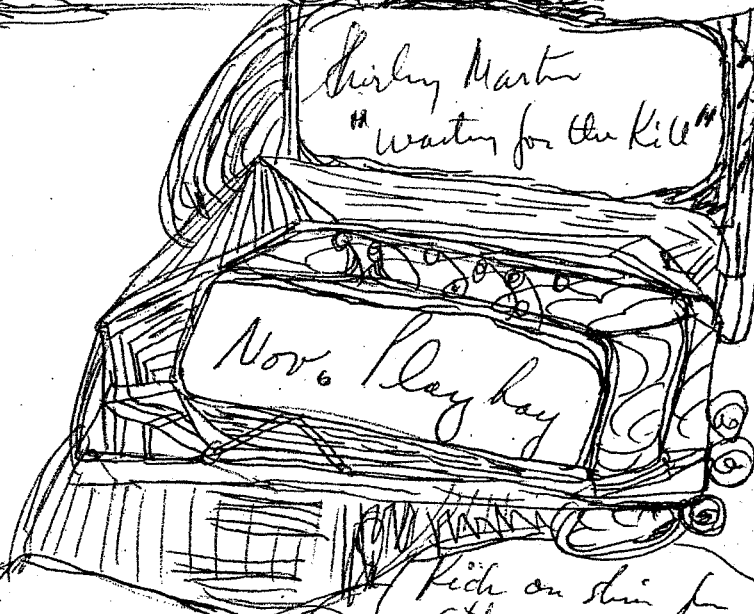 Shirley Martin
"waiting for the Kill"
Nov. Playboy
Kick on shin